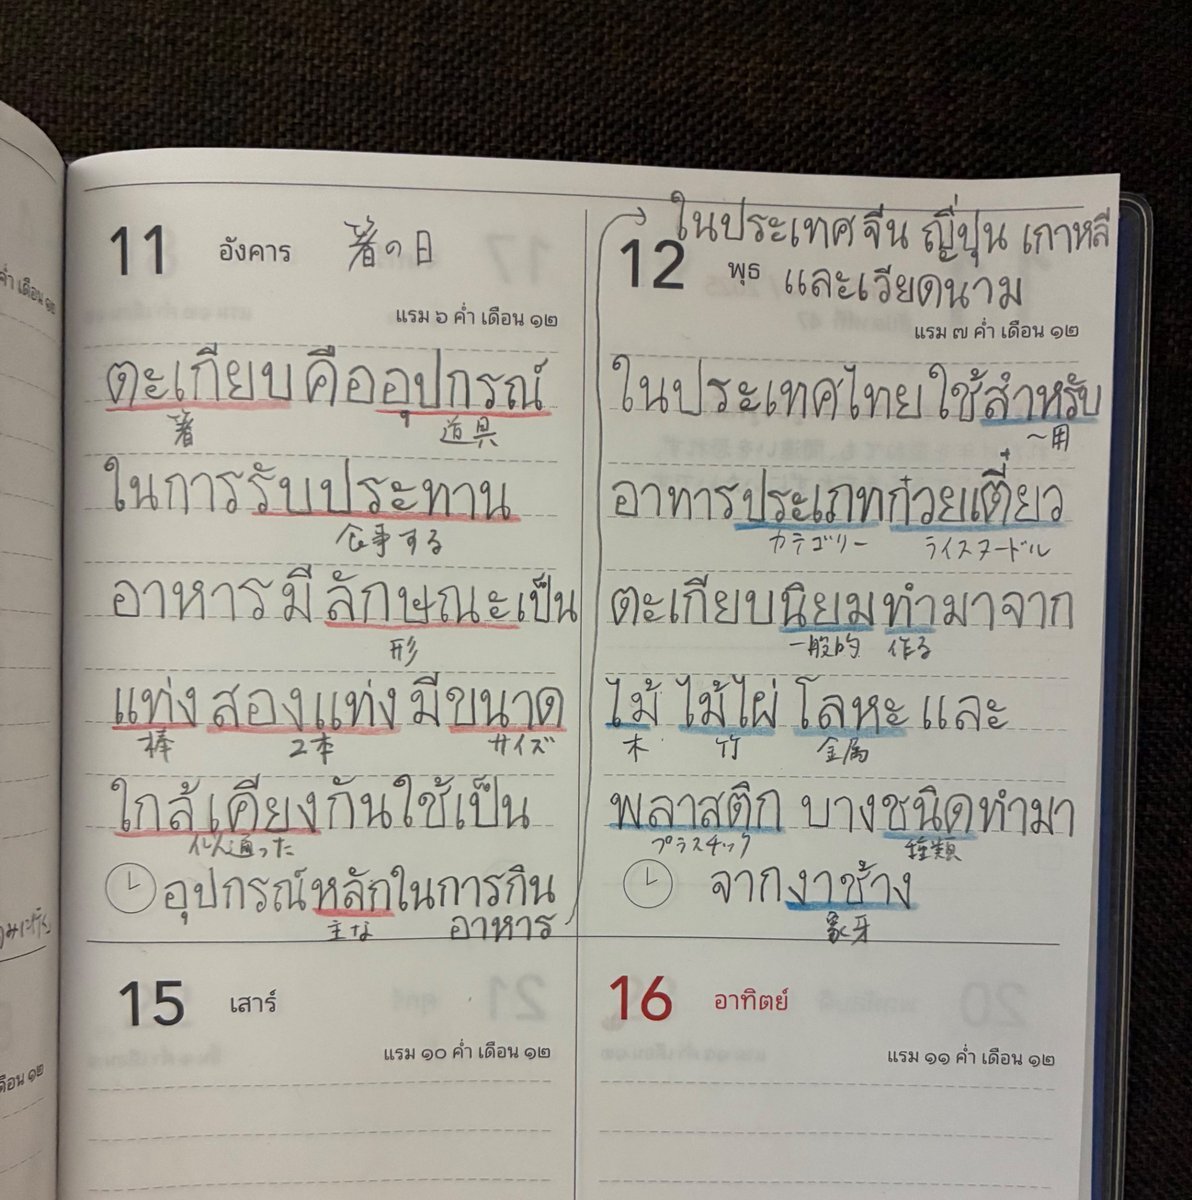 11 อังคาร 箸の日
แรม ๖ ค่ำ เดือน ๑๒
ตะเกียบคืออุปกรณ์
箸 道具
ในการรับประทาน
食事する
อาหารมีลักษณะเป็น
形
แท่งสองแท่งมีขนาด
棒 2本 サイズ
ใกล้เคียงกันใช้เป็น
似通った
อุปกรณ์หลักในการกิน
主な
อาหาร
ในประเทศจีน ญี่ปุ่น เกาหลี
12 พุธ และเวียดนาม
แรม ๗ ค่ำ เดือน ๑๒
ในประเทศไทยใช้สำหรับ
〜用
อาหารประเภทก๋วยเตี๋ยว
カテゴリー ライスヌードル
ตะเกียบนิยมทำมาจาก
一般的 作る
ไม้ ไม้ไผ่ โลหะ และ
木 竹 金属
พลาสติก บางชนิดทำมา
プラスチック 種類
จากงาช้าง
象牙
15 เสาร์
แรม ๑๐ ค่ำ เดือน ๑๒
16 อาทิตย์
แรม ๑๑ ค่ำ เดือน ๑๒